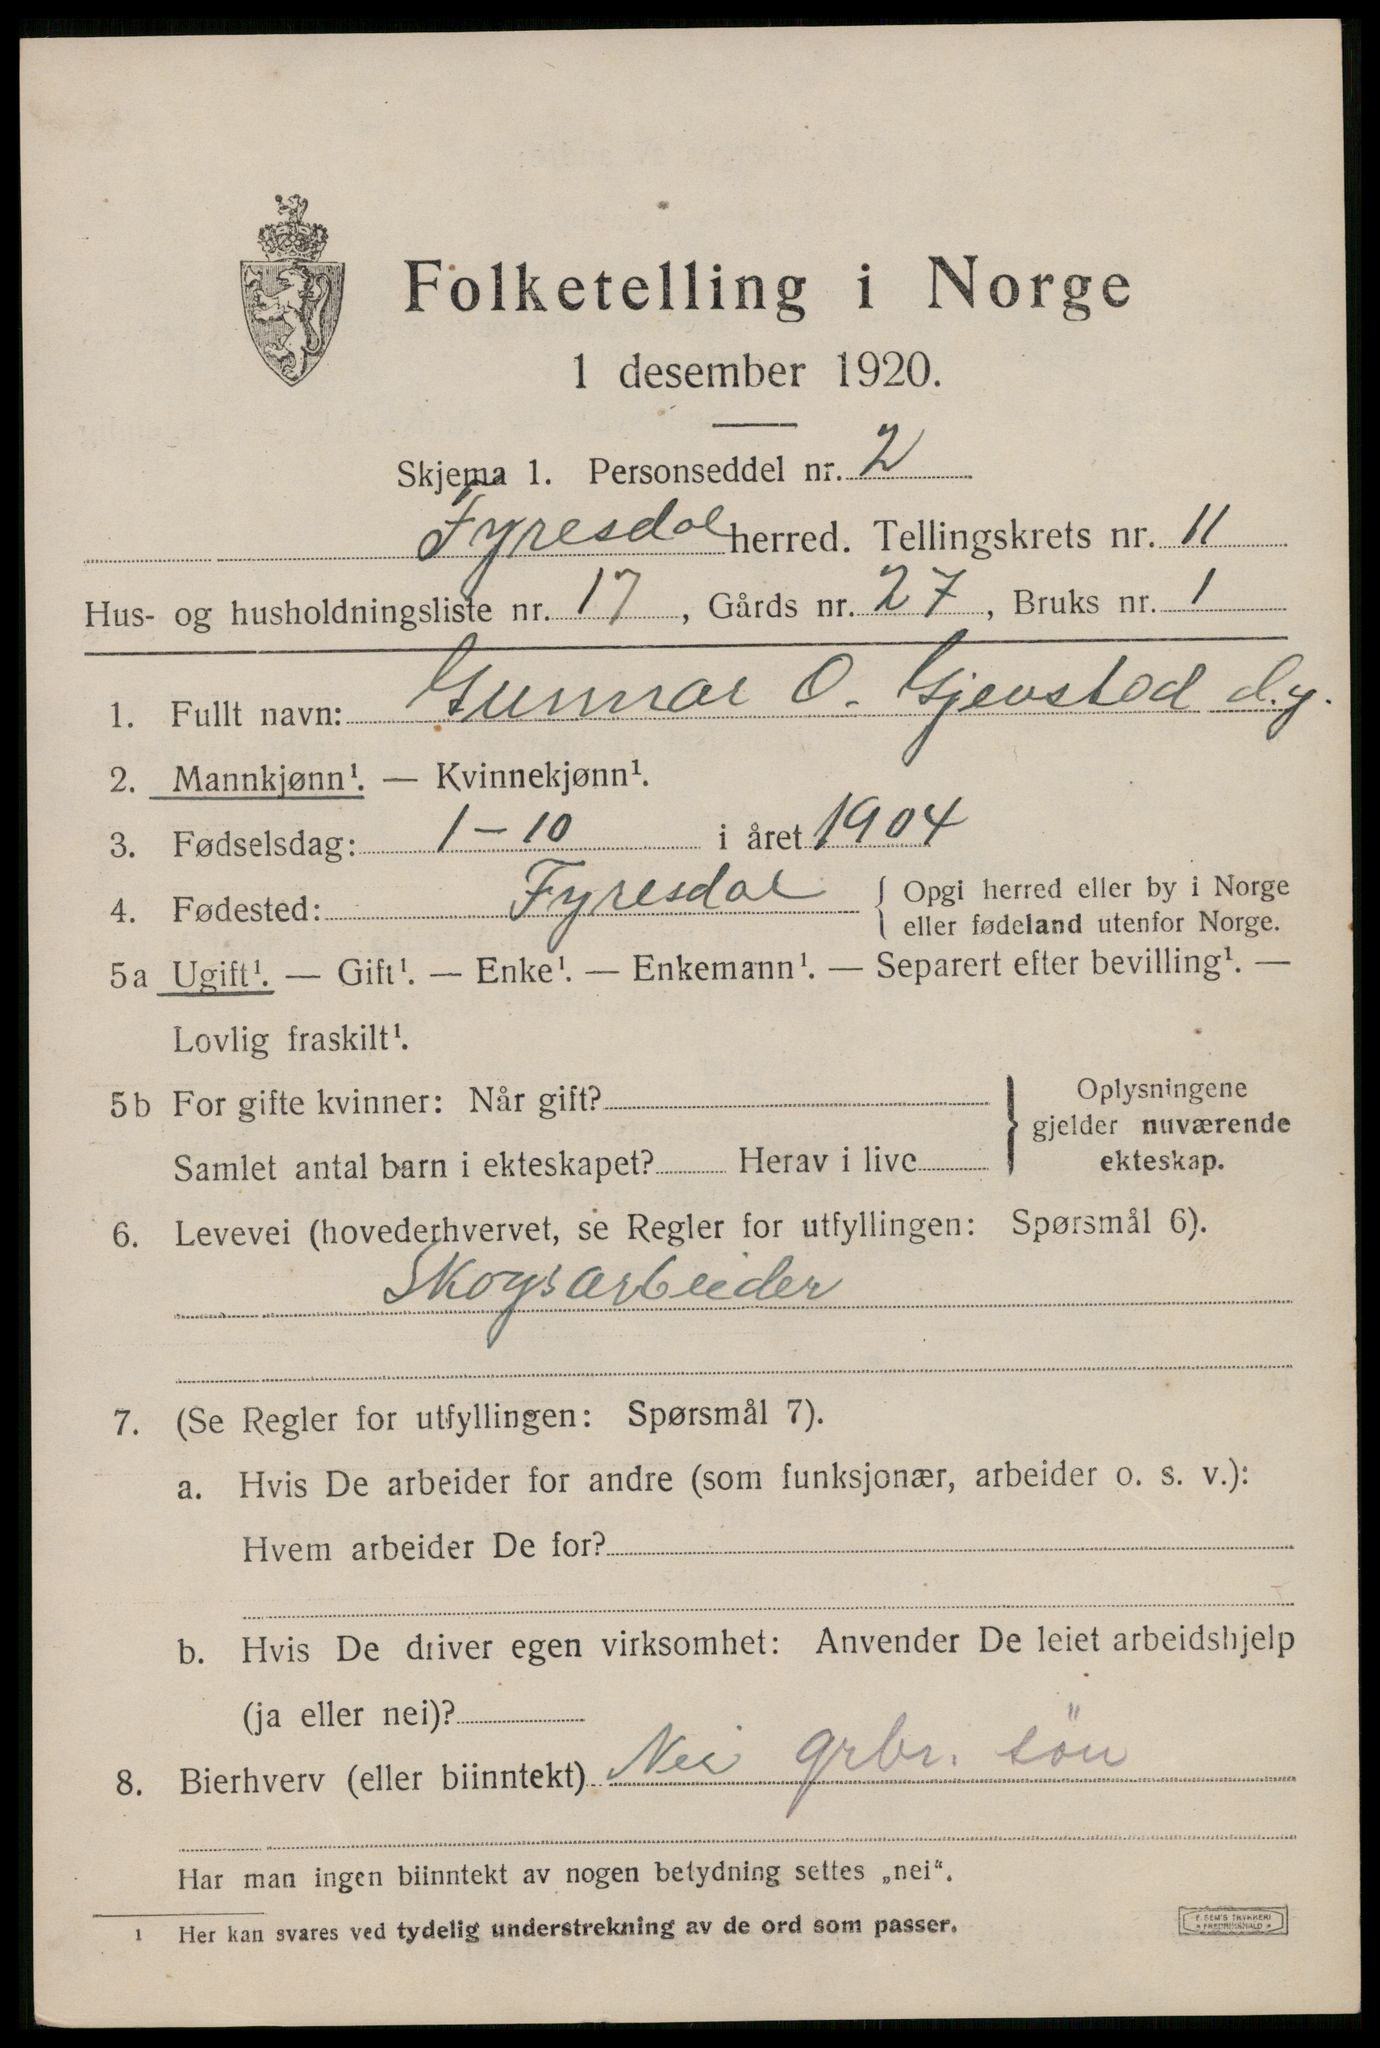 Folketelling i Norge
1 desember 1920.
Skjema 1. Personseddel nr. 2
Fyresdal herred. Tellingskrets nr. 11
Hus- og husholdningsliste nr. 17, Gårds nr. 27, Bruks nr. 1
1. Fullt navn: Gunnar O. Gjevstad d.y.
2. Mannkjønn¹. — Kvinnekjønn¹.
3. Fødselsdag: 1-10 i året 1904
4. Fødested: Fyresdal { Opgi herred eller by i Norge
eller fødeland utenfor Norge.
5a Ugift¹. — Gift¹. — Enke¹. — Enkemann¹. — Separert efter bevilling¹. —
Lovlig fraskilt¹.
5b For gifte kvinner: Når gift?
Samlet antal barn i ekteskapet? Herav i live
} Oplysningene
gjelder nuværende
ekteskap.
6. Levevei (hovederhvervet, se Regler for utfyllingen: Spørsmål 6).
Skogsarbeider
7. (Se Regler for utfyllingen: Spørsmål 7).
a. Hvis De arbeider for andre (som funksjonær, arbeider o. s. v.):
Hvem arbeider De for?
b. Hvis De driver egen virksomhet: Anvender De leiet arbeidshjelp
(ja eller nei)?
8. Bierhverv (eller biinntekt) Nei grbr. søn
Har man ingen biinntekt av nogen betydning settes „nei“.
¹ Her kan svares ved tydelig understrekning av de ord som passer.
F. SEM'S TRYKKERI
* FREDRIKSHALD *